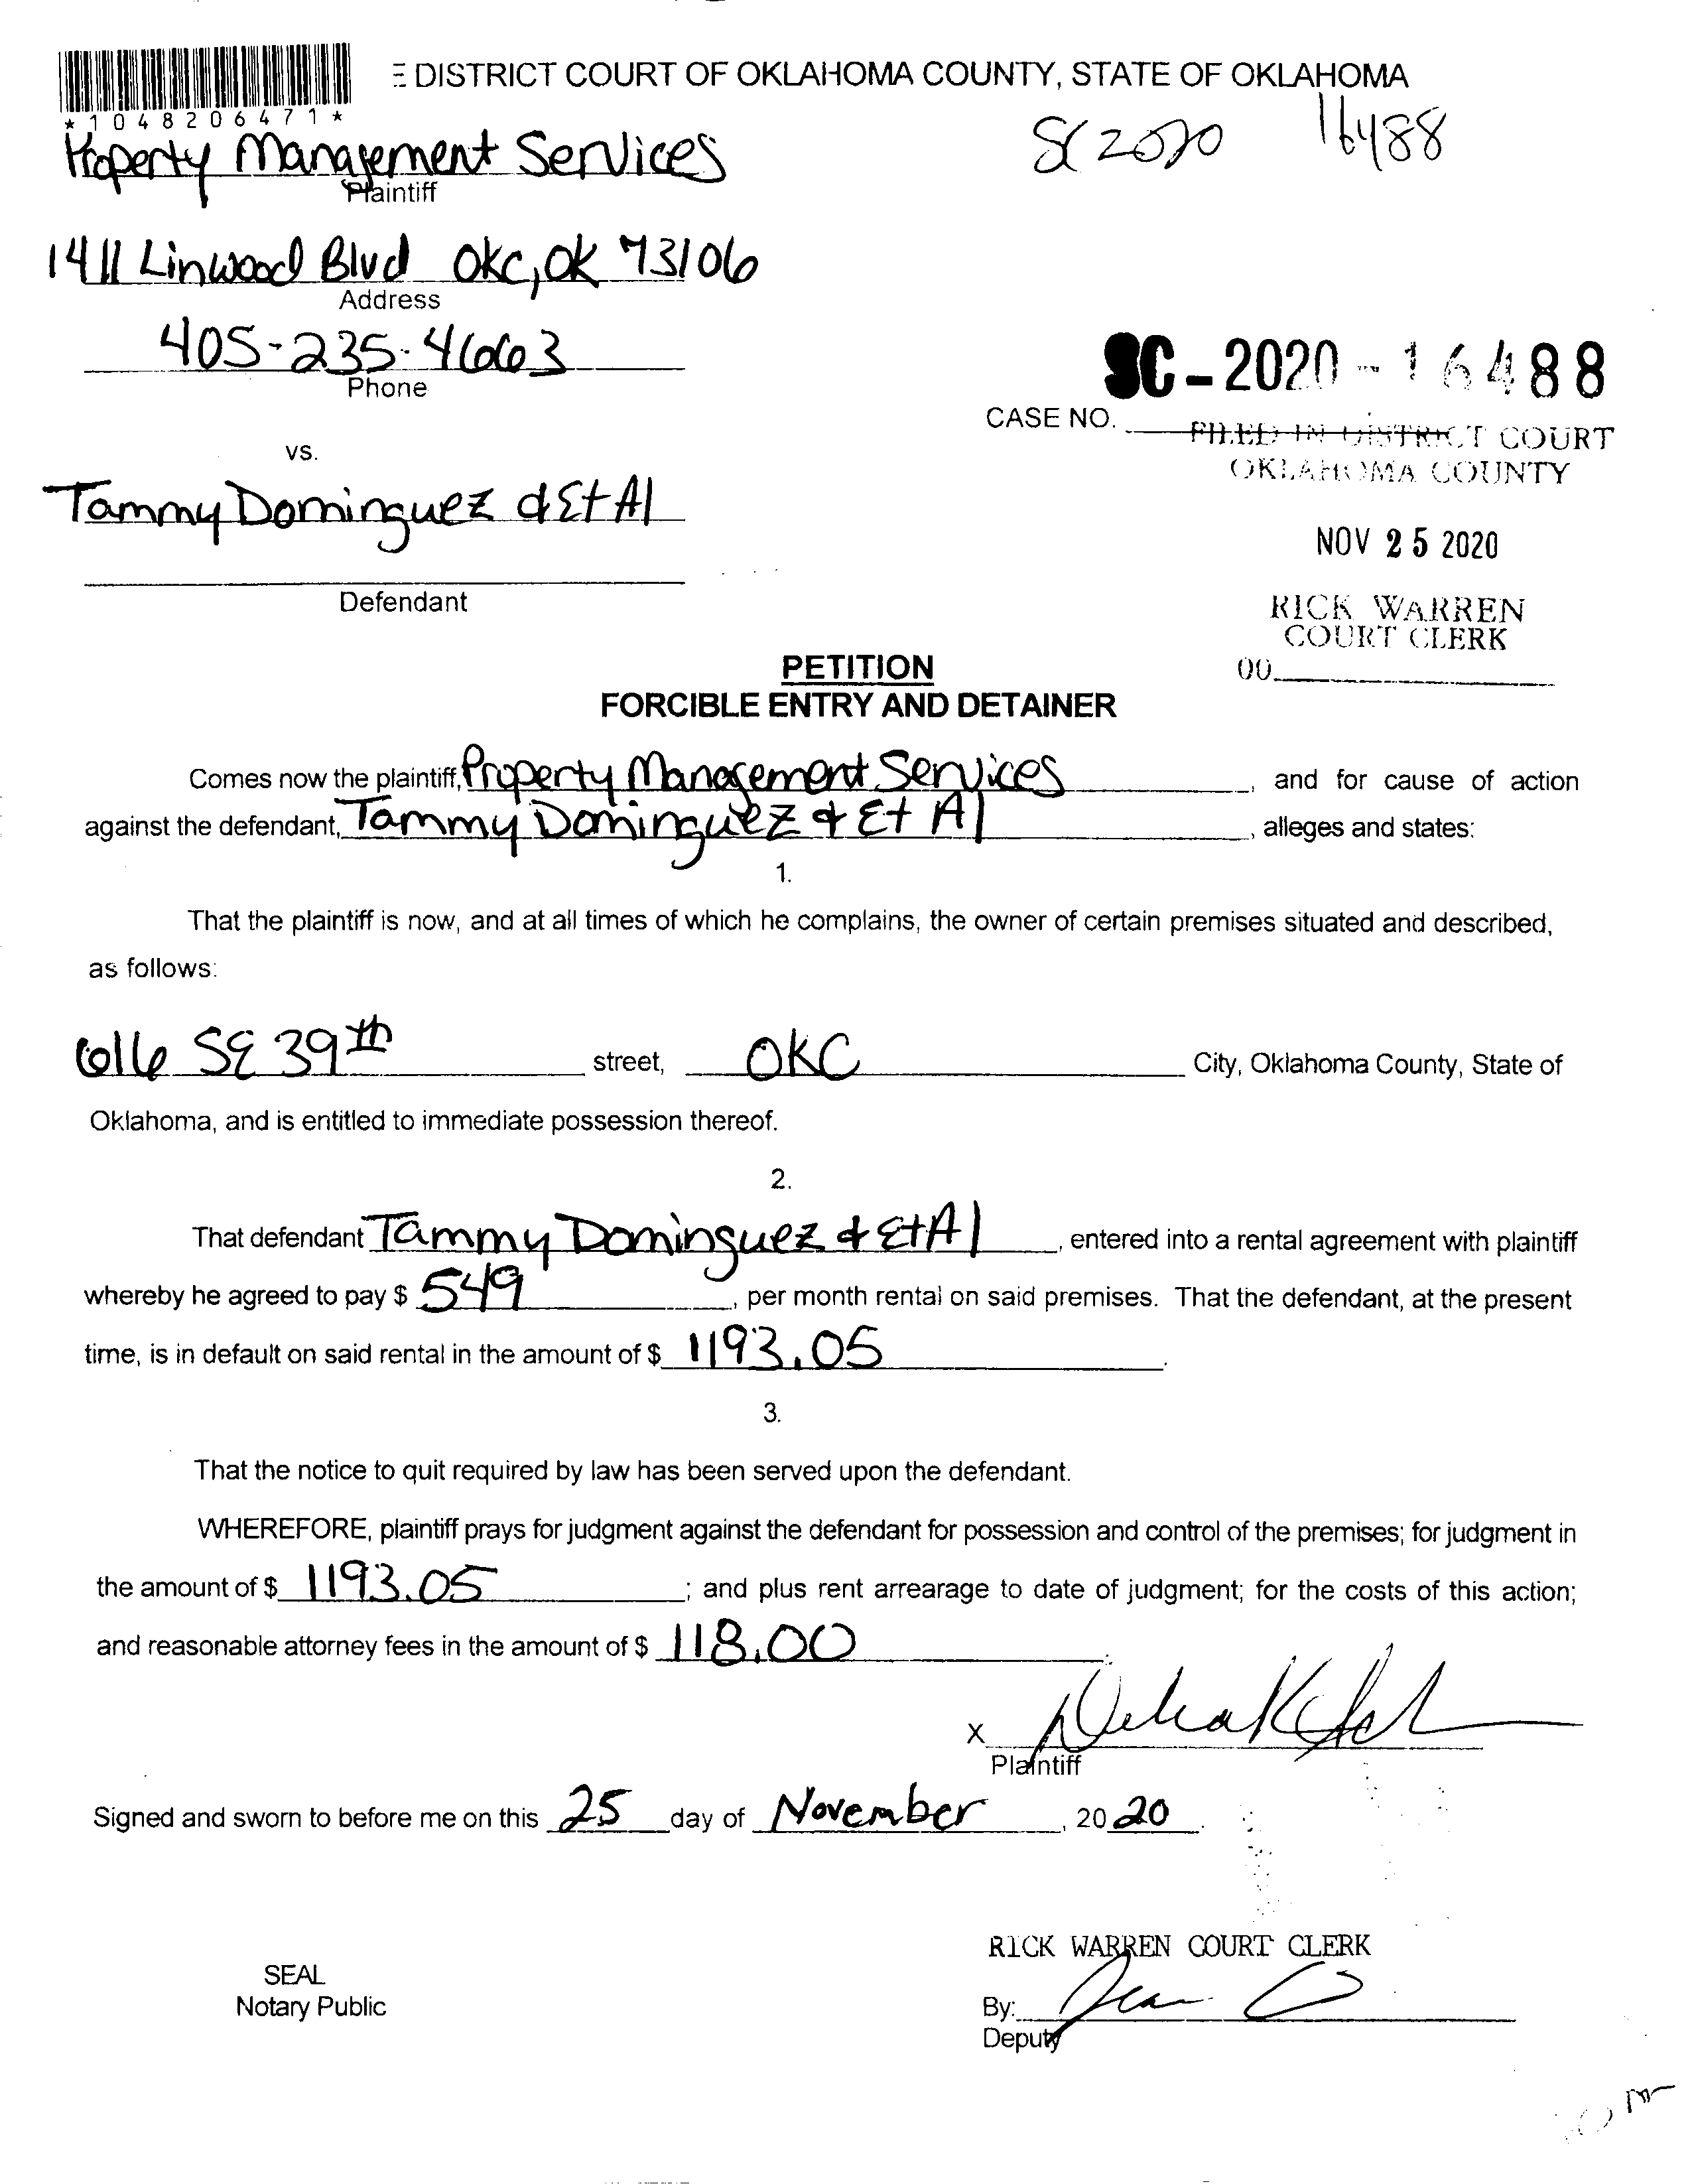 DISTRICT COURT OF OKLAHOMA COUNTY, STATE OF OKLAHOMA
*1048206471*
SC 2020 16488
Property Management Services
Plaintiff
1411 Linwood Blvd OKC, OK 73106
Address
405-235-4663
Phone
SC-2020-16488
CASE NO.
FILED IN DISTRICT COURT
OKLAHOMA COUNTY
vs.
Tammy Dominguez & Et Al
NOV 25 2020
Defendant
RICK WARREN
COURT CLERK
00
PETITION
FORCIBLE ENTRY AND DETAINER
Comes now the plaintiff, Property Management Services, and for cause of action
against the defendant, Tammy Dominguez & Et Al, alleges and states:
1.
That the plaintiff is now, and at all times of which he complains, the owner of certain premises situated and described,
as follows:
616 SE 39th street, OKC City, Oklahoma County, State of
Oklahoma, and is entitled to immediate possession thereof.
2.
That defendant Tammy Dominguez & Et Al, entered into a rental agreement with plaintiff
whereby he agreed to pay $ 549, per month rental on said premises. That the defendant, at the present
time, is in default on said rental in the amount of $ 1193.05.
3.
That the notice to quit required by law has been served upon the defendant.
WHEREFORE, plaintiff prays for judgment against the defendant for possession and control of the premises; for judgment in
the amount of $ 1193.05; and plus rent arrearage to date of judgment; for the costs of this action;
and reasonable attorney fees in the amount of $ 118.00.
X
Plaintiff
Signed and sworn to before me on this 25 day of November, 2020.
RICK WARREN COURT CLERK
SEAL
Notary Public
By:
Deputy